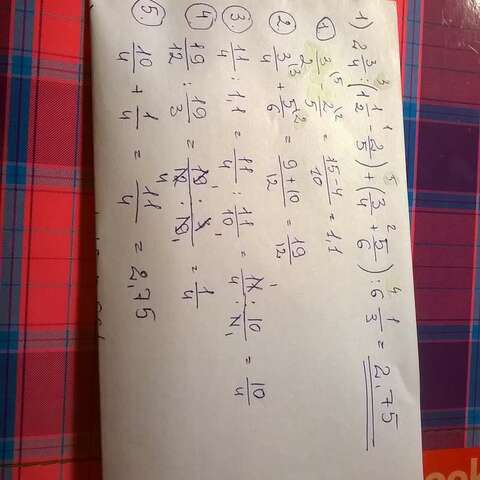 1) 2 3/4 : (1 1/2 - 2/5) + (3/4 + 5/6) : 6 1/3 = 2,75
3 1 5 2 4
1. 3/2 - 2/5 = 15-4/10 = 1,1
2. 3/4 + 5/6 = 9+10/12 = 19/12
3. 11/4 : 1,1 = 11/4 : 11/10 = 11/4 · 10/11 = 10/4
4. 19/12 : 19/3 = 19/12 · 3/19 = 1/4
5. 10/4 + 1/4 = 11/4 = 2,75